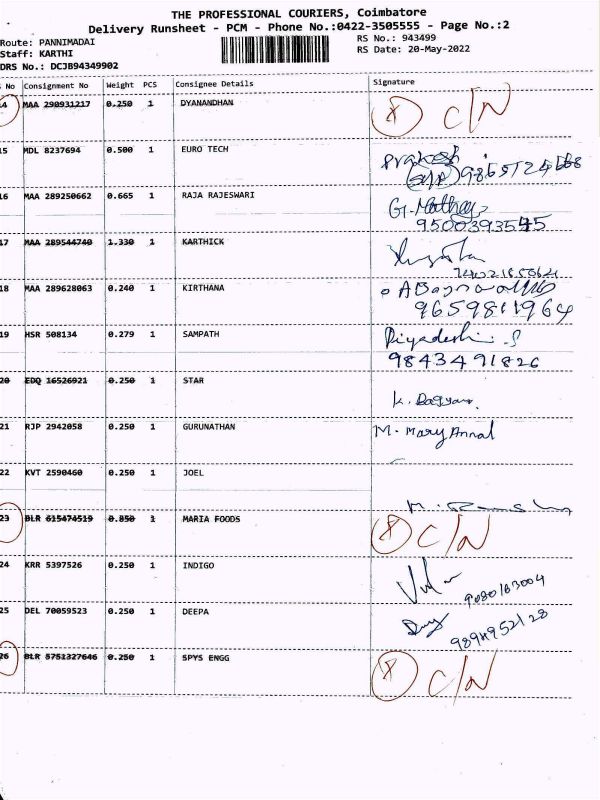 THE PROFESSIONAL COURIERS, Coimbatore
Delivery Runsheet - PCM - Phone No.:0422-3505555 - Page No.:2
Route: PANNIMADAI
Staff: KARTHI
DRS No.: DCJB94349902
RS No.: 943499
RS Date: 20-May-2022
No Consignment No Weight PCS Consignee Details Signature
14 MAA 290931217 0.250 1 DYANANDHAN X C/N
15 MDL 8237694 0.500 1 EURO TECH Prakash
16 MAA 289250662 0.665 1 RAJA RAJESWARI
9500393545
17 MAA 289544740 1.330 1 KARTHICK
18 MAA 289628063 0.240 1 KIRTHANA
9659811964
19 HSR 508134 0.279 1 SAMPATH
9843491826
20 EDQ 16526921 0.250 1 STAR
21 RJP 2942058 0.250 1 GURUNATHAN M. Mary Annal
22 KVT 2590460 0.250 1 JOEL
23 BLR 615474519 0.850 1 MARIA FOODS X C/N
24 KRR 5397526 0.250 1 INDIGO
25 DEL 70059523 0.250 1 DEEPA
26 BLR 5751327646 0.250 1 SPYS ENGG X C/N